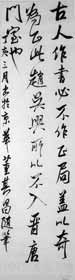 古人作書必不作正局蓋以奇
為正此趙吳興所以不入晉唐
門室也
三月 書於京華 董其昌隨筆